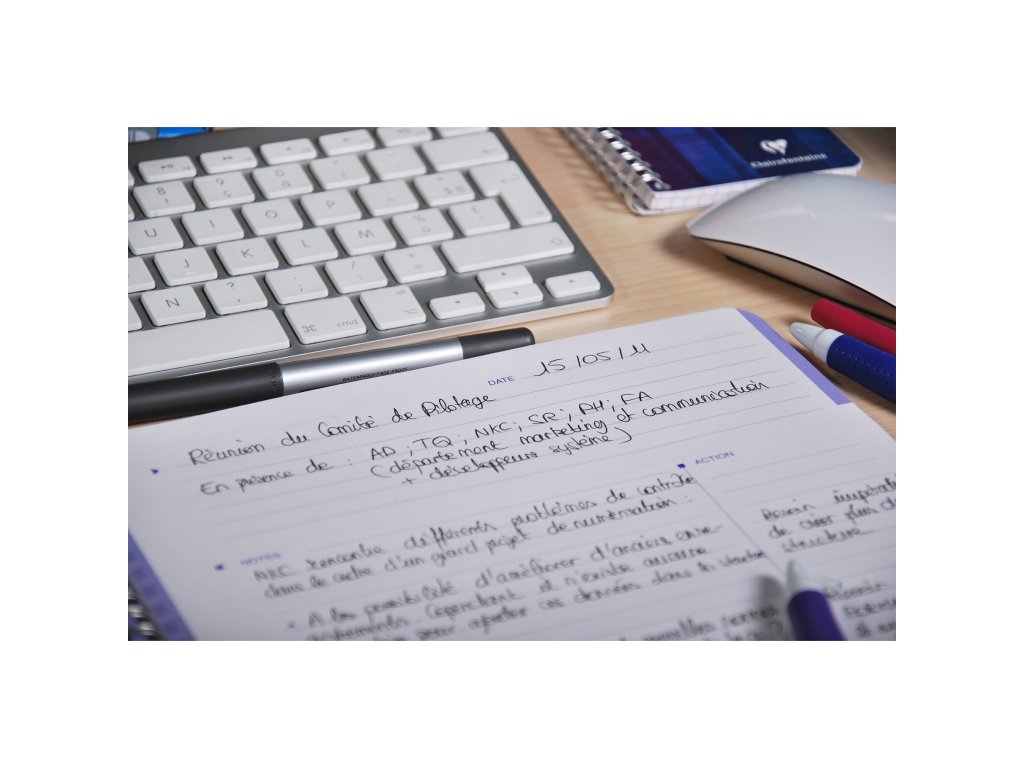 Clairefontaine
8
9
ç
0
à
U
I
O
P
J
K
L
M
N
?
,
;
/
:
+
=
cmd
WATERPROOF/FADE-PROOF
DATE 15/05/11
Réunion du Comité de Pilotage
En présence de : AD ; TQ ; NKC ; SR ; PH ; FA
(département marketing et communication
+ développeurs système)
ACTION
NOTES
NKC rencontre différents problèmes de contrôle
dans le cadre d'un grand projet de numérisation :
• A la possibilité d'améliorer d'anciens enre-
gistrements. Cependant il n'existe aucune
pour ajouter ces données dans la structure
Besoin
de plus
structure